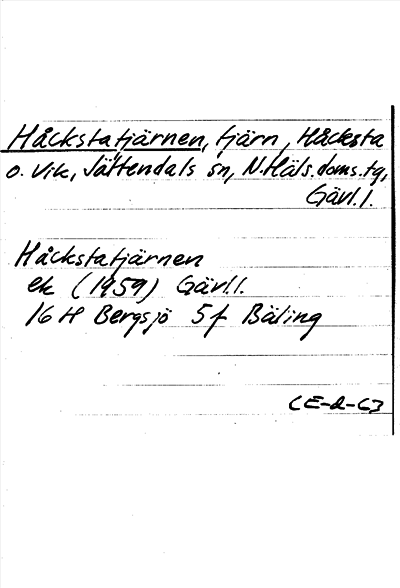 Håckstatjärnen, tjärn, Håcksta
o. Vik, Jättendals sn, N.Häls.doms.tg,
Gävl.l.
Håckstatjärnen
ek (1959) Gävl.l.
16 H Bergsjö 5f Bäling